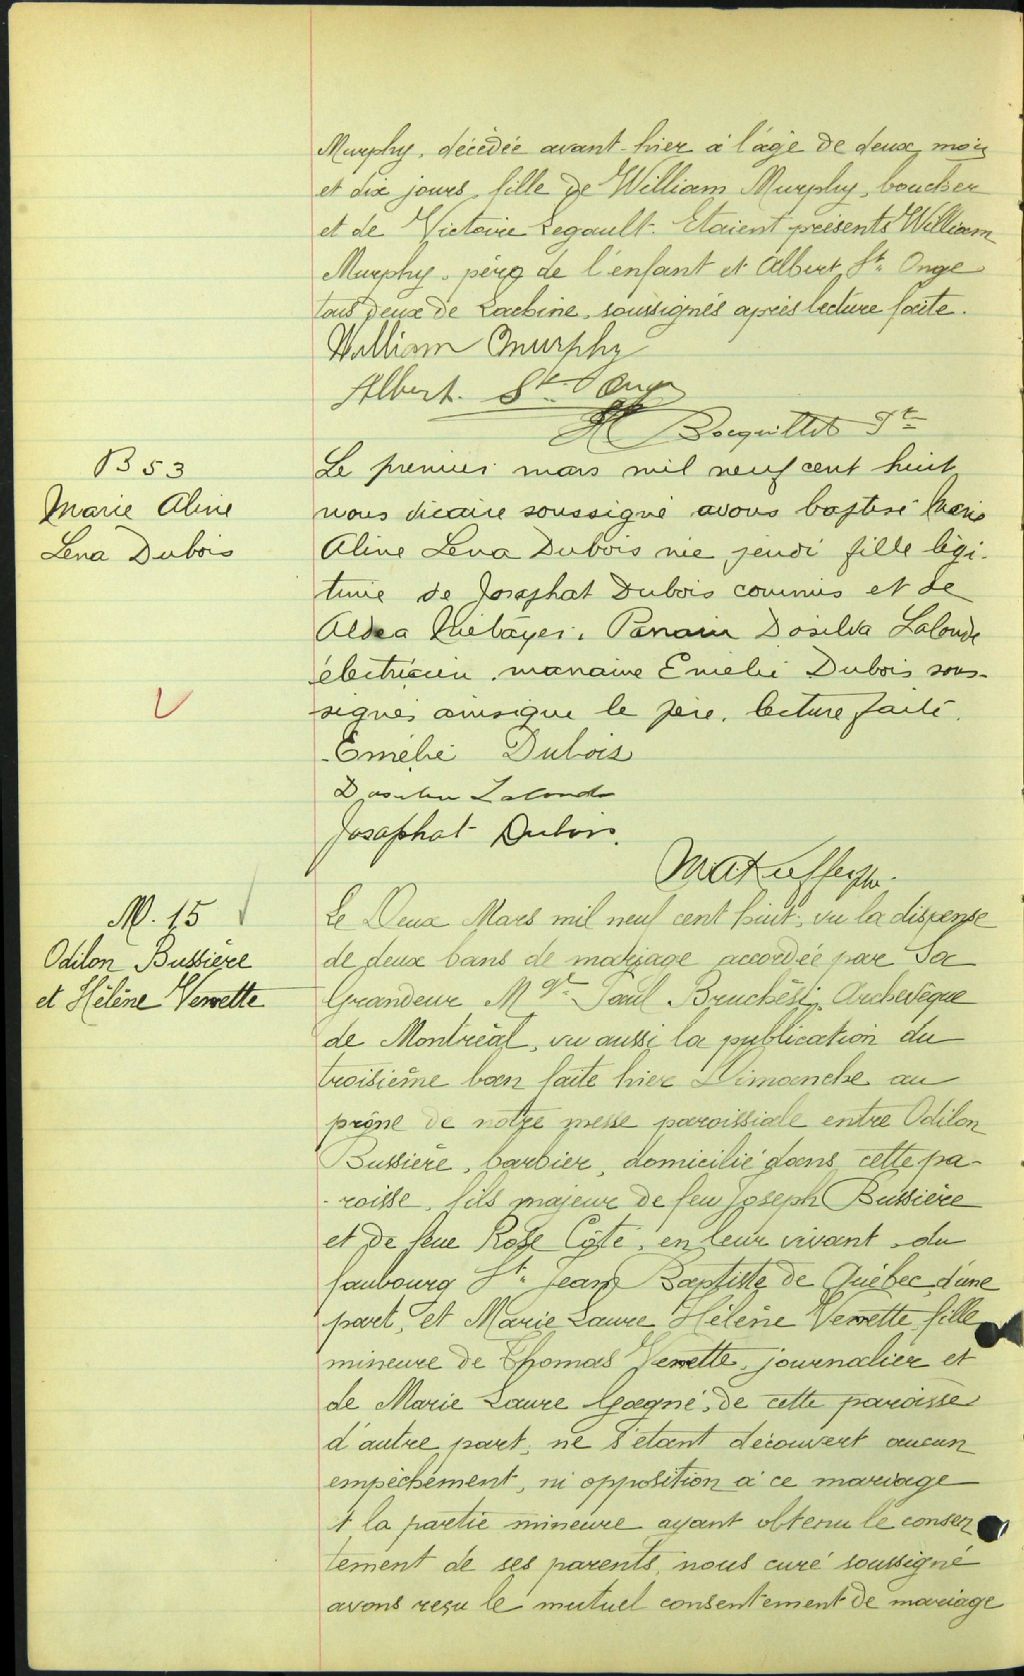 Murphy, décédée avant-hier à l'âge de deux mois
et dix jours, fille de William Murphy, boucher
et de Victoire Legault. Etaient présents William
Murphy, père de l'enfant et Albert St. Onge
tous deux de Lachine, soussignés après lecture faite.
William Murphy
Albert St. Onge
Bocquillet Pt
B 53
Marie Aline
Lena Dubois
Le premier mars mil neuf cent huit
nous vicaire soussigné avons baptisé Marie
Aline Lena Dubois née jeudi fille légi-
time de Josaphat Dubois commis et de
Aldea Parrain Dosilva Lalonde
électricien, marraine Emélie Dubois sous-
signés ainsique le père, lecture faite.
Emélie Dubois
Lalonde
Josaphat Dubois.
M. 15
Odilon Bussière
et Hélène Verrette
Le Deux Mars mil neuf cent huit, vu la dispense
de deux bans de mariage accordée par Sa
Grandeur Mgr. Paul Bruchési, Archevêque
de Montréal, vu aussi la publication du
troisième ban faite hier Dimanche au
prône de notre messe paroissiale entre Odilon
Bussière, barbier, domicilié dans cette pa-
-roisse, fils majeur de feu Joseph Bussière
et de feue Rose Côté, en leur vivant, du
faubourg St. Jean Baptiste de Québec, d'une
part, et Marie Laure Hélène Verrette, fille
mineure de Thomas Verrette, journalier et
de Marie Laure Gagné, de cette paroisse
d'autre part, ne s'étant découvert aucun
empêchement, ni opposition à ce mariage
et la partie mineure ayant obtenu le consen
tement de ses parents, nous curé soussigné
avons reçu le mutuel consentement de mariage